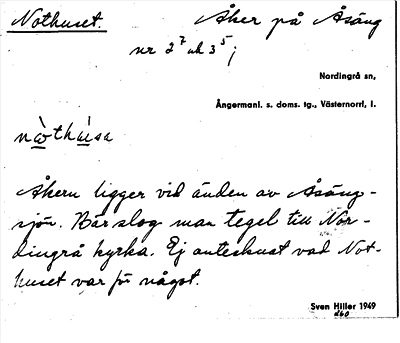 Nothuset. Åker på Åsäng
nr 2⁷ och 3⁵;
Nordingrå sn,
Ångermanl. s. doms. tg., Västernorrl. l.
Åkern ligger vid änden av Åsäng-
sjön. Där slog man tegel till Nor-
dingrå kyrka. Ej antecknat vad Not-
huset var för något.
Sven Hiller 1949